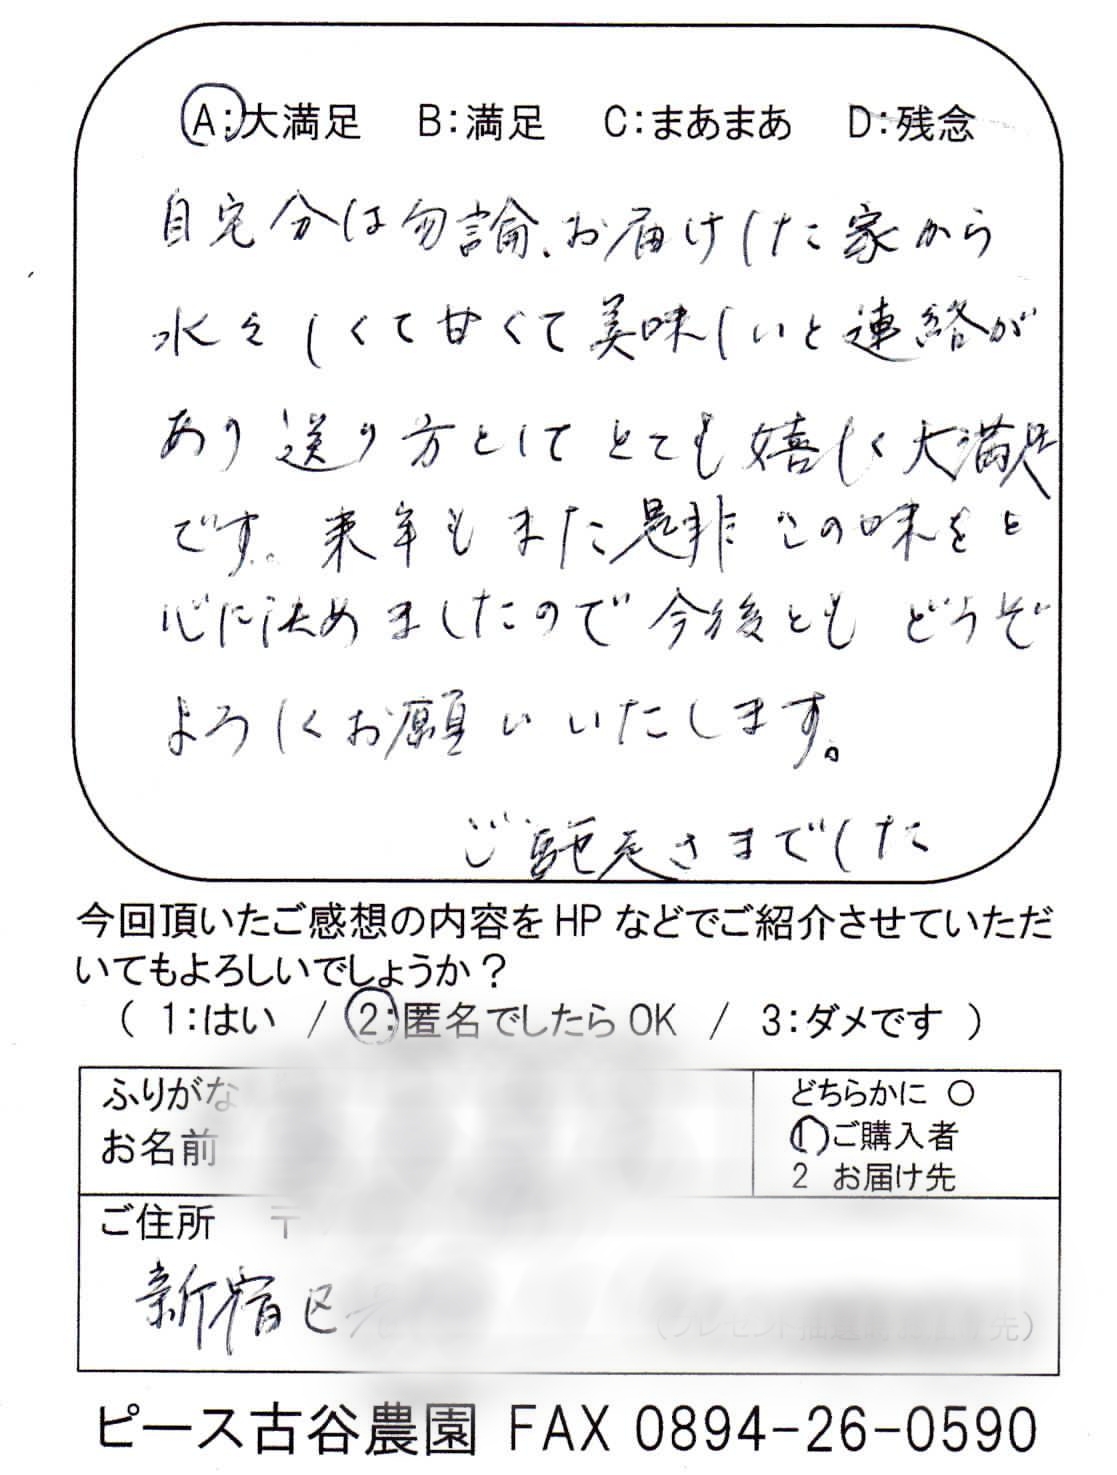 A:大満足 B:満足 C:まあまあ D:残念
自宅分は勿論、お届けした家から
水々しくて甘くて美味しいと連絡が
あり送り方としてとても嬉しく大満足
です。来年もまた是非この味をと
心に決めましたので今後ともどうぞ
よろしくお願いいたします。
ご馳走さまでした
今回頂いたご感想の内容をHPなどでご紹介させていただ
いてもよろしいでしょうか？
（ 1:はい / 2:匿名でしたらOK / 3:ダメです ）
ふりがな
お名前
どちらかに ○
1 ご購入者
2 お届け先
ご住所 〒
新宿区
ピース古谷農園 FAX 0894-26-0590